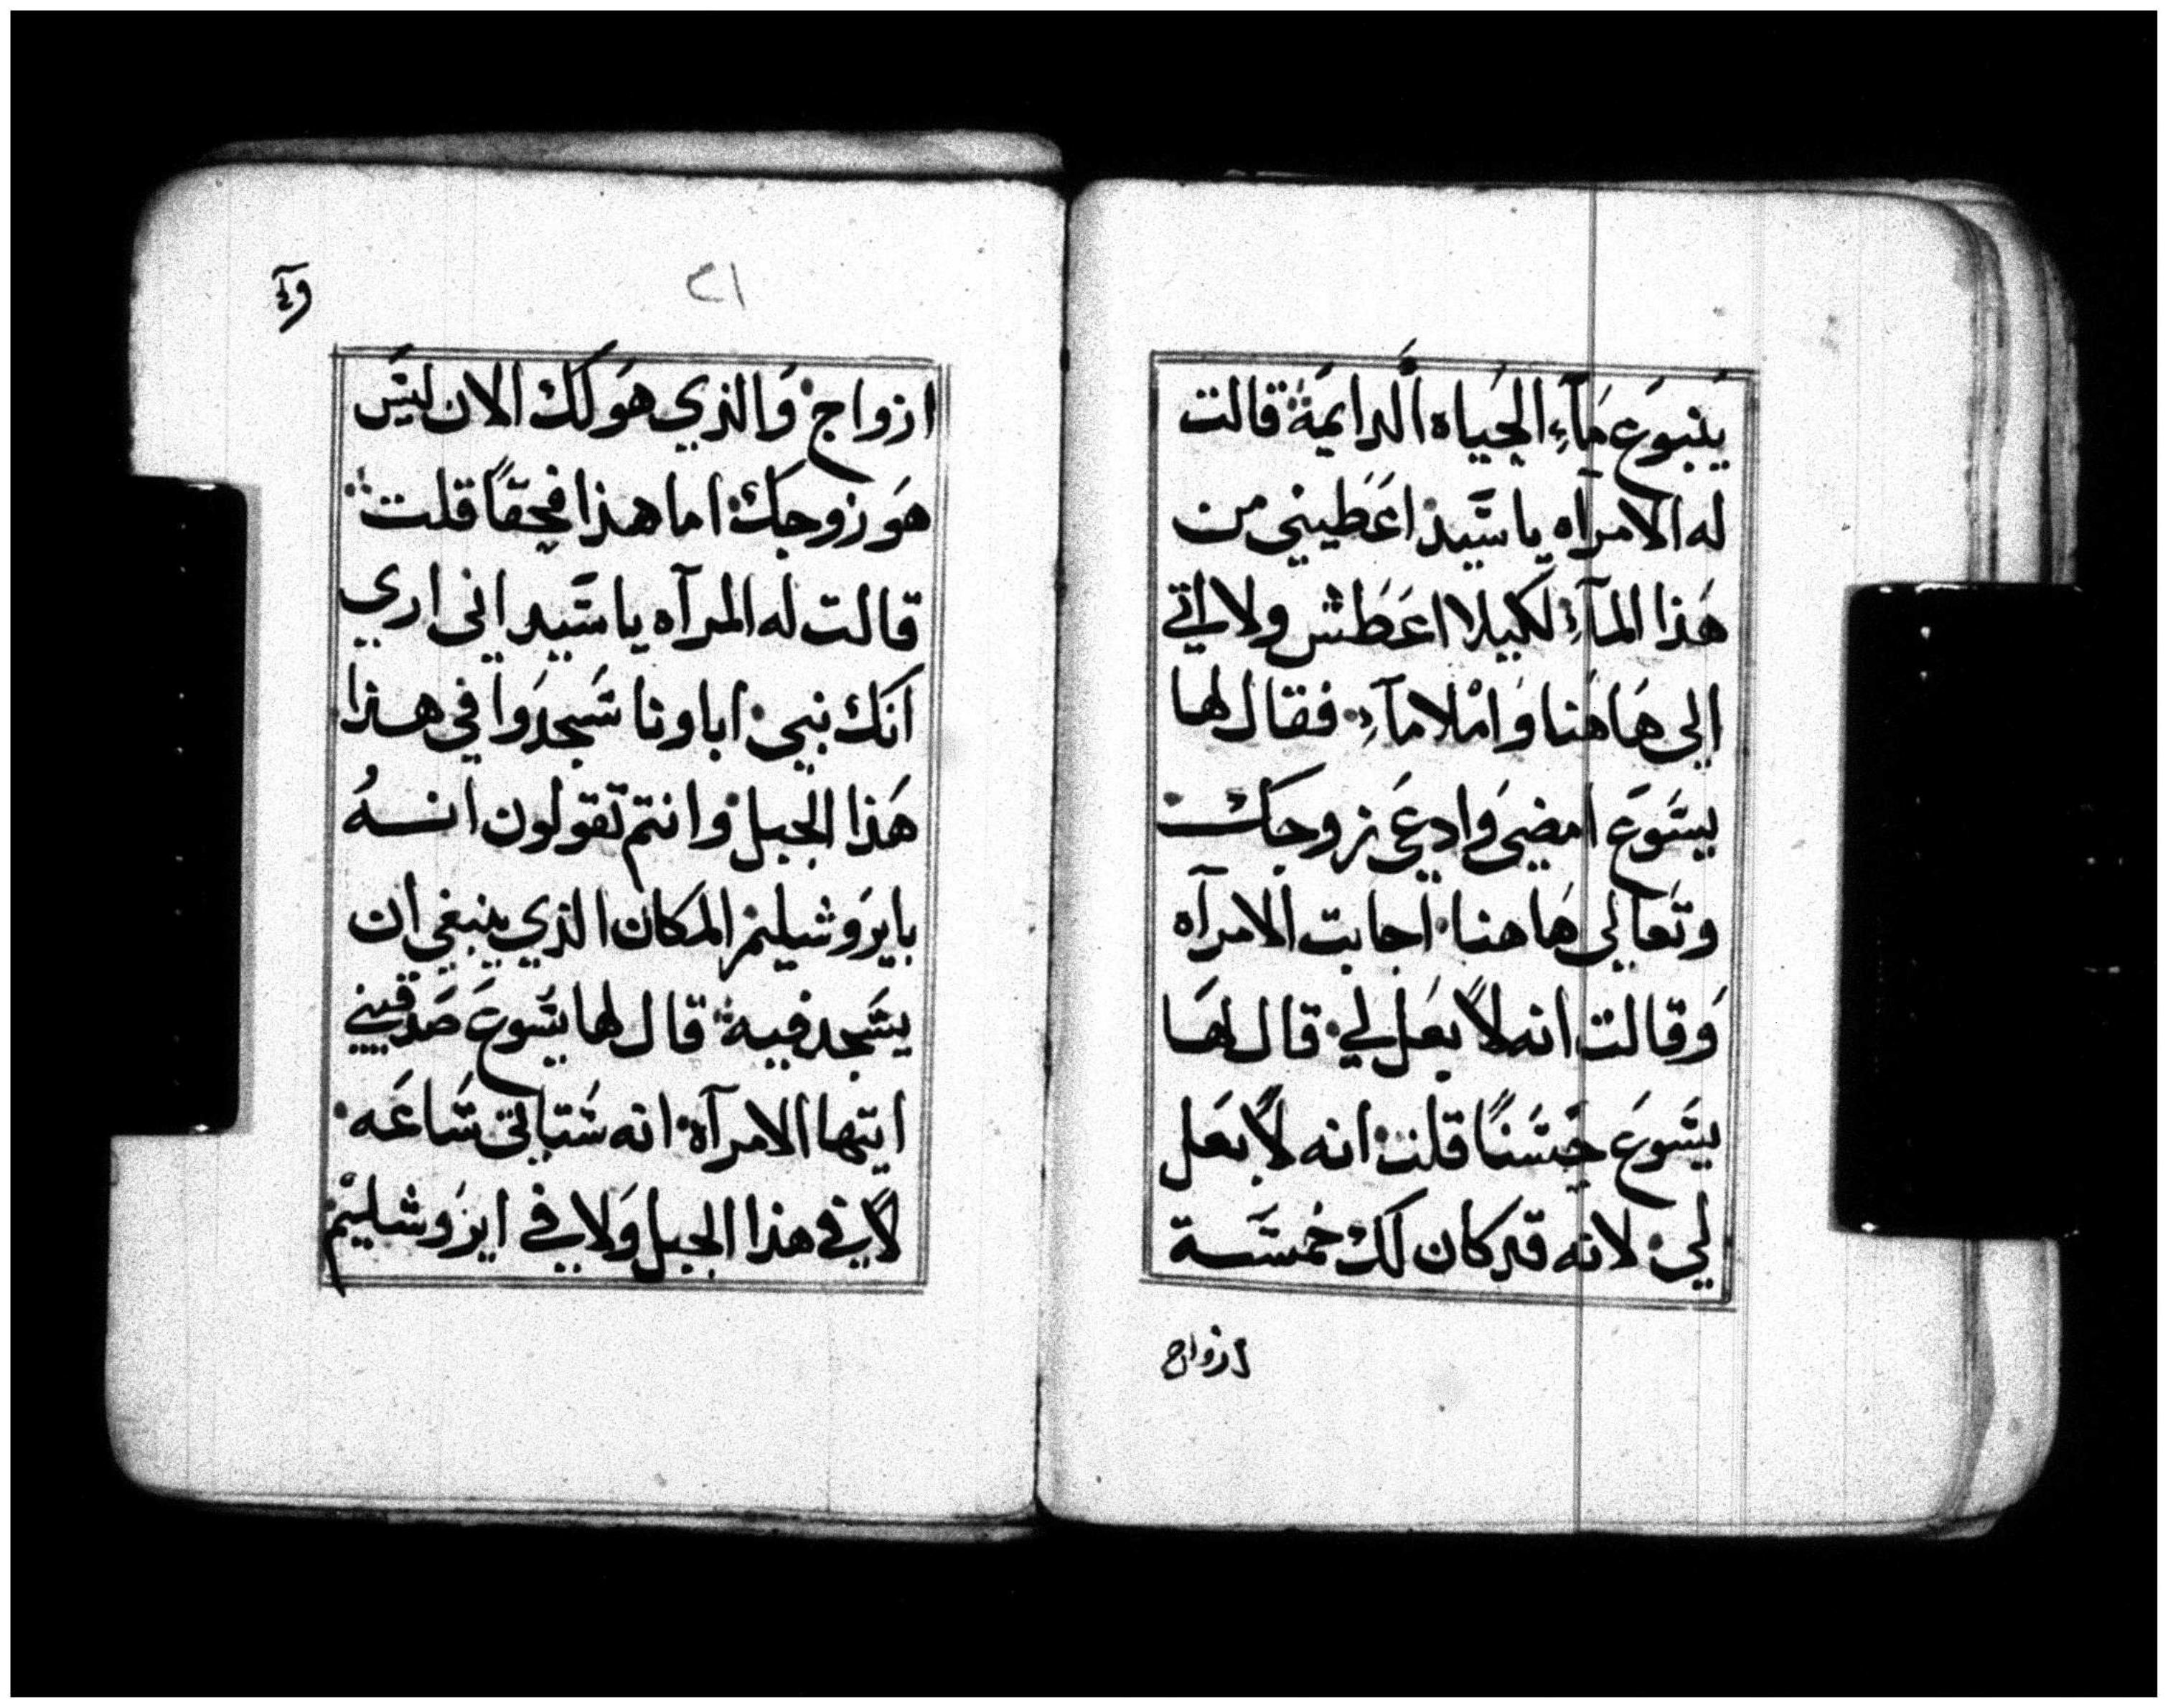 ينبوع مآء الحياه الدايمة قالت
له الامراه يا سيد اعطيني من
هذا المآء لكيلا اعطش ولا اتي
الى هاهنا واملا مآء فقال لها
يسوع امضى وادعى زوجك
وتعالى هاهنا اجابت الامرآه
وقالت انه لا بعل لي قال لها
يسوع حسنًا قلت انه لا بعل
لي لانه قد كان لك خمسة
ازواج
٢١
ازواج والذي هو لك الان ليس
هو زوجك اما هذا فحقًا قلت
قالت له المرآه يا سيد انى اري
انك نبي اباونا سجدوا في هذا
هذا الجبل وانتم تقولون انهُ
بايروشليم المكان الذي ينبغى ان
يسجد فيه قال لها يسوع صدقيني
ايتها الامرآة انه ستاتى ساعه
لا في هذا الجبل ولا في ايروشليم